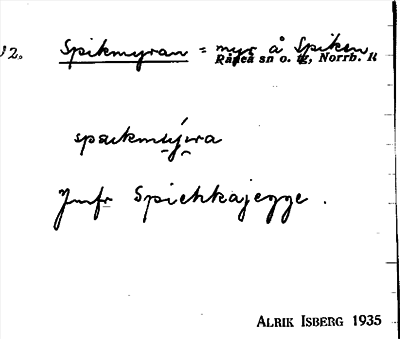 92. Spikmyran = myr å Spiken
Råneå sn o. tg, Norrb. lt
Jmfr Spiehkajegge.
ALRIK ISBERG 1935